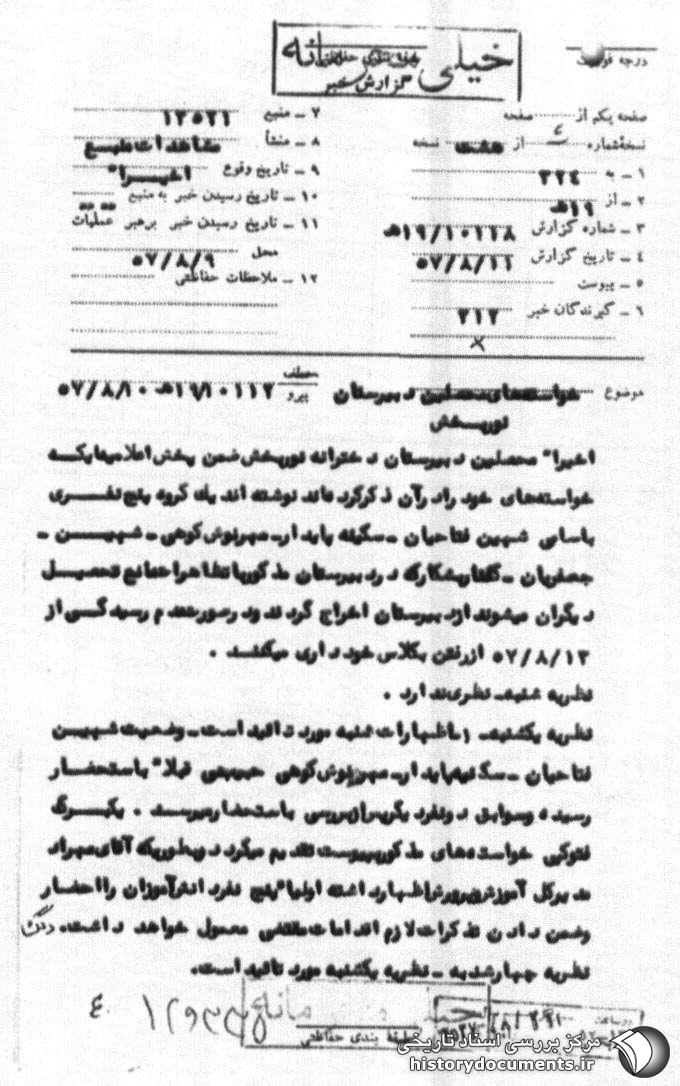 خیلی محرمانه
گزارش خبر
درجه فوریت
صفحه یکم از صفحه
نسخه شماره ٤ از هشت نسخه
۱ ـ به ۳۲٤
۲ ـ از ۱۹هـ
۳ ـ شماره گزارش ۱۹/۱۰۱۱۸هـ
٤ ـ تاریخ گزارش ۵۷/۸/۱۱
۵ ـ پیوست
٦ ـ گیرندگان خبر ۳۱۲
۷ ـ منبع ۱۲۵۲۱
۸ ـ منشأ مشاهدات منبع
۹ ـ تاریخ وقوع اخیرا"
۱۰ ـ تاریخ رسیدن خبر به منبع
۱۱ ـ تاریخ رسیدن خبر برهبر عملیات
محل ۵۷/۸/۹
۱۲ ـ ملاحظات حفاظتی
موضوع خواسته‌های محصلین دبیرستان
نوربخش
عطف
پیرو ۱۹/۱۰۱۱۲هـ ۵۷/۸/۱۰
اخیرا" محصلین دبیرستان دخترانه نوربخش ضمن پخش اعلامیه‌ایکه
خواسته‌های خود را در آن ذکر کرده‌اند نوشته اند یك گروه پنج نفری
باسامی شهین فتاحیان ـ سکینه پایدار ـ مهرنوش کوهی ـ شهین ـ
جعفریان ـ گلنار بشکار که در دبیرستان مذکور با تظاهرات مانع تحصیل
دیگران میشوند از دبیرستان اخراج گردند و در صورت عدم رسیدگی از
۵۷/۸/۱۳ از رفتن بکلاس خودداری میکنند .
نظریه شنبه ـ نظری ندارد .
نظریه یکشنبه ـ ۱ـ اظهارات شنبه مورد تائید است ـ وضعیت شهین
فتاحیان ـ سکینه پایدار ـ مهرنوش کوهی حبیبی قبلا" باستحضار
رسیده و سوابق دو نفر دیگر پس از بررسی باستحضار میرسد . یکبرگ
فتوکپی خواسته‌های مذکور بپیوست تقدیم میگردد بطوریکه آقای مهراد
مدیرکل آموزش و پرورش اظهار داشته اولیا" پنج نفر دانش آموزان را احضار
و ضمن دادن تذکرات لازم اقدامات مقتضی معمول خواهد داشت.
نظریه چهارشنبه ـ نظریه یکشنبه مورد تائید است.
طبقه بندی حفاظتی
مرکز بررسی اسناد تاریخی
historydocuments.ir